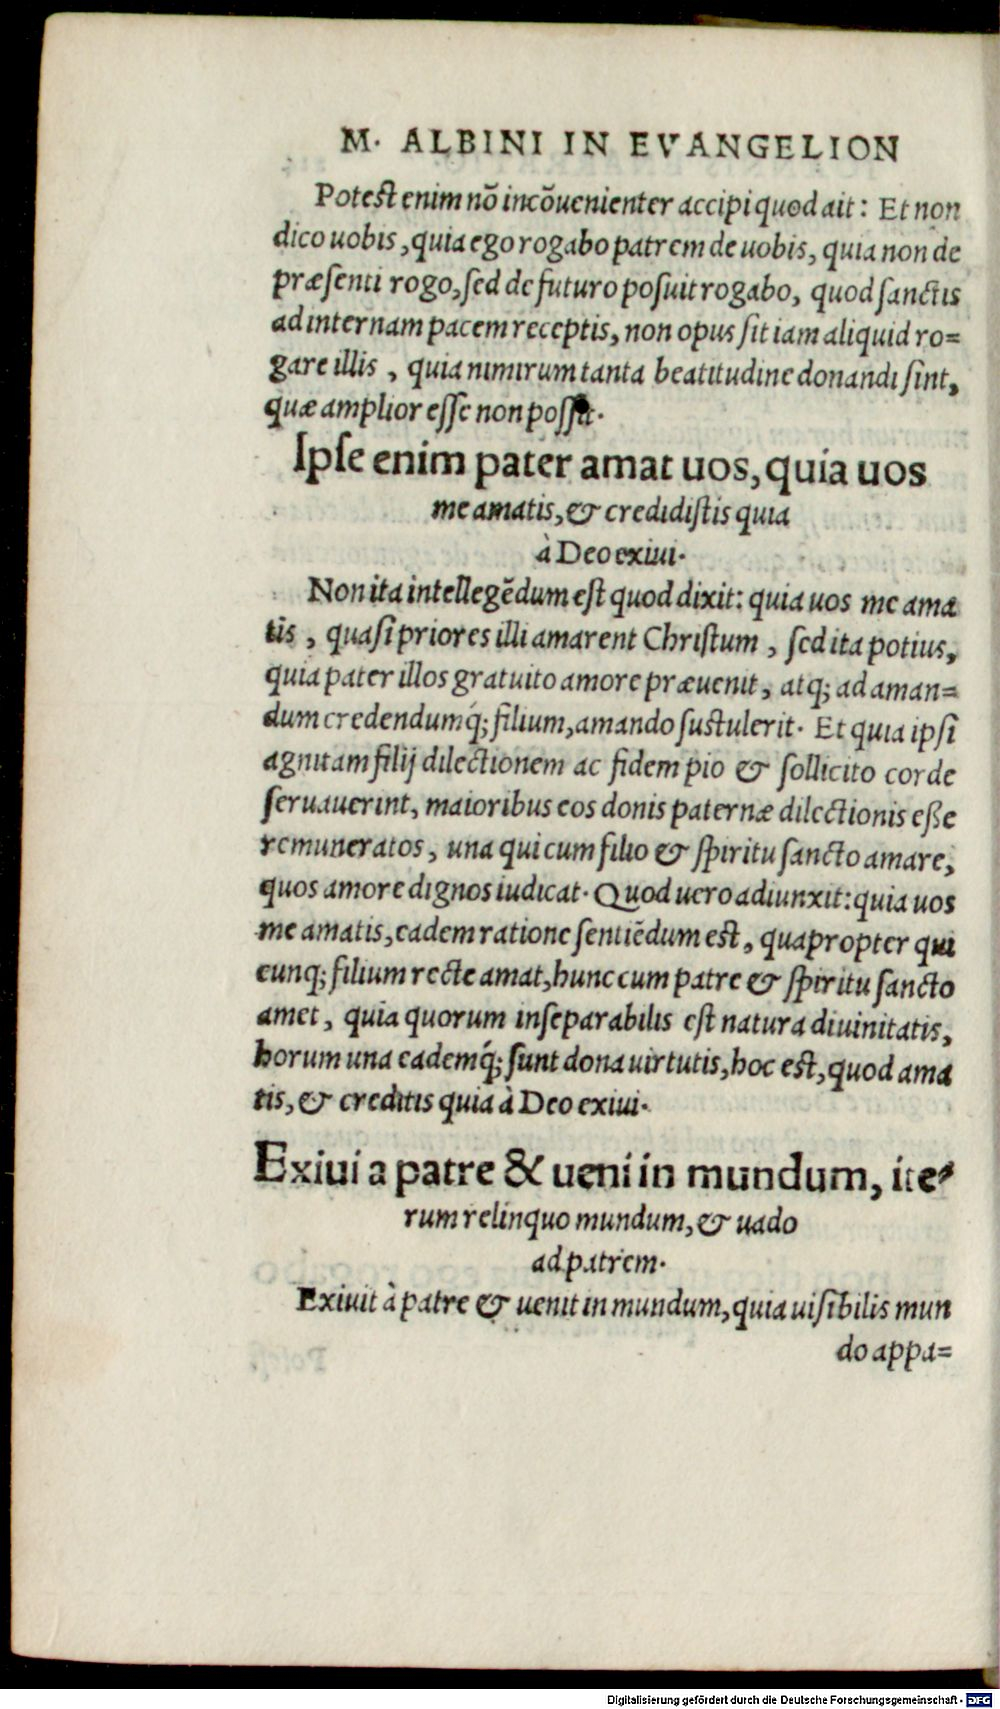 M. ALBINI IN EVANGELION
Potest enim nõ incõuenienter accipi quod ait: Et non
dico uobis, quia ego rogabo patrem de uobis, quia non de
præsenti rogo, sed de futuro posuit rogabo, quod sanctis
ad internam pacem receptis, non opus sit iam aliquid ro=
gare illis, quia nimirum tanta beatitudine donandi sint,
quæ amplior esse non possit.
Ipse enim pater amat uos, quia uos
me amatis, & credidistis quia
à Deo exiui.
Non ita intellegẽdum est quod dixit: quia uos me ama
tis, quasi priores illi amarent Christum, sed ita potius,
quia pater illos gratuito amore præuenit, atq; ad aman=
dum credendumq́; filium, amando sustulerit. Et quia ipsi
agnitam filij dilectionem ac fidem pio & sollicito corde
seruauerint, maioribus eos donis paternæ dilectionis eße
remuneratos, una qui cum filio & spiritu sancto amare,
quos amore dignos iudicat. Quod uero adiunxit: quia uos
me amatis, eadem ratione sentiẽdum est, quapropter qui
cunq; filium recte amat, hunc cum patre & spiritu sancto
amet, quia quorum inseparabilis est natura diuinitatis,
horum una eademq́; sunt dona uirtutis, hoc est, quod ama
tis, & creditis quia à Deo exiui.
Exiui a patre & ueni in mundum, ite=
rum relinquo mundum, & uado
ad patrem.
Exiuit à patre & uenit in mundum, quia uisibilis mun
do appa=
Digitalisierung gefördert durch die Deutsche Forschungsgemeinschaft - DFG